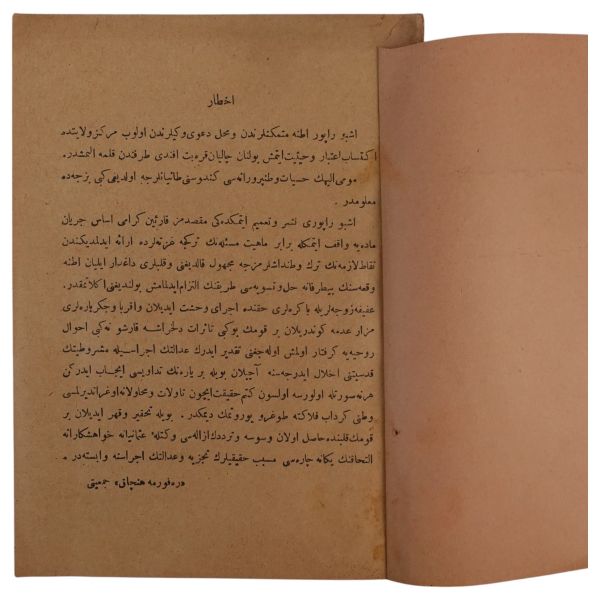 اخطار
اشبو راپور اطنه متمكنلرندن ومحل دعوی وكيلرندن اولوب مركز ولايتده
اكتساب اعتبار وحيثيت ايتمش بولنان چاليان قره‌بت افندی طرفندن قلمه آلنمشدر.
مومی اليهك حسيات وطنپرورانه‌سی كندوسنی طانيانلرجه اولديغی كبی بزجه‌ده
معلومدر.
اشبو راپوری نشر و تعميم ايتمكده‌كی مقصدمز قارئين كرامی اساس جريان
ماده‌يه واقف ايتمكله برابر ماهيت مسئله‌نك تركجه غزته‌لرده ارائه ايدلمديكندن
نقاط لازمه‌نك ترك وطنداشلرمزجه مجهول قالديغنی وقلبلری داغدار ايليان اطنه
وقعه‌سنك بيطرفانه حل وتسويه‌سی طريقنك التزام ايدلمامش بولنديغنی اكلاتمقدر.
عفيفه زوجه‌لريله باكره‌لری حقنده اجرای وحشت ايديلان واقربا وجكرپاره‌لری
مزار عدمه كوندريلان بر قومك بوكبی تاثرات دلخراشه قارشو نه‌كبی احوال
روحيه‌يه كرفتار اولمش اوله‌جغی تقدير ايدرك عدالتك اجراسيله مشروطيتك
قدسيتنی اخلال ايدرجه‌سنه آچيلان بويله بر ياره‌نك تداويسی ايجاب ايدركن
هرنه صورتله اولورسه اولسون كتم حقيقت ايچون تاويلات ومحاولاته اوغرانديرلمسی
وطنی كرداب فلاكته طوغرو يوروتمك ديمكدر. بويله تحقير وقهر ايديلان بر
قومك قلبنده حاصل اولان وسوسه وترددك ازاله‌سی وكتلهٔ عثمانيانه خواهشكارانه
التحاقنك يكانه چاره‌سی مسبب حقيقيلرك تجزيه وعدالتك اجراسنه وابسته‌در.
«ره‌فورمه هنچاق» جمعيتی